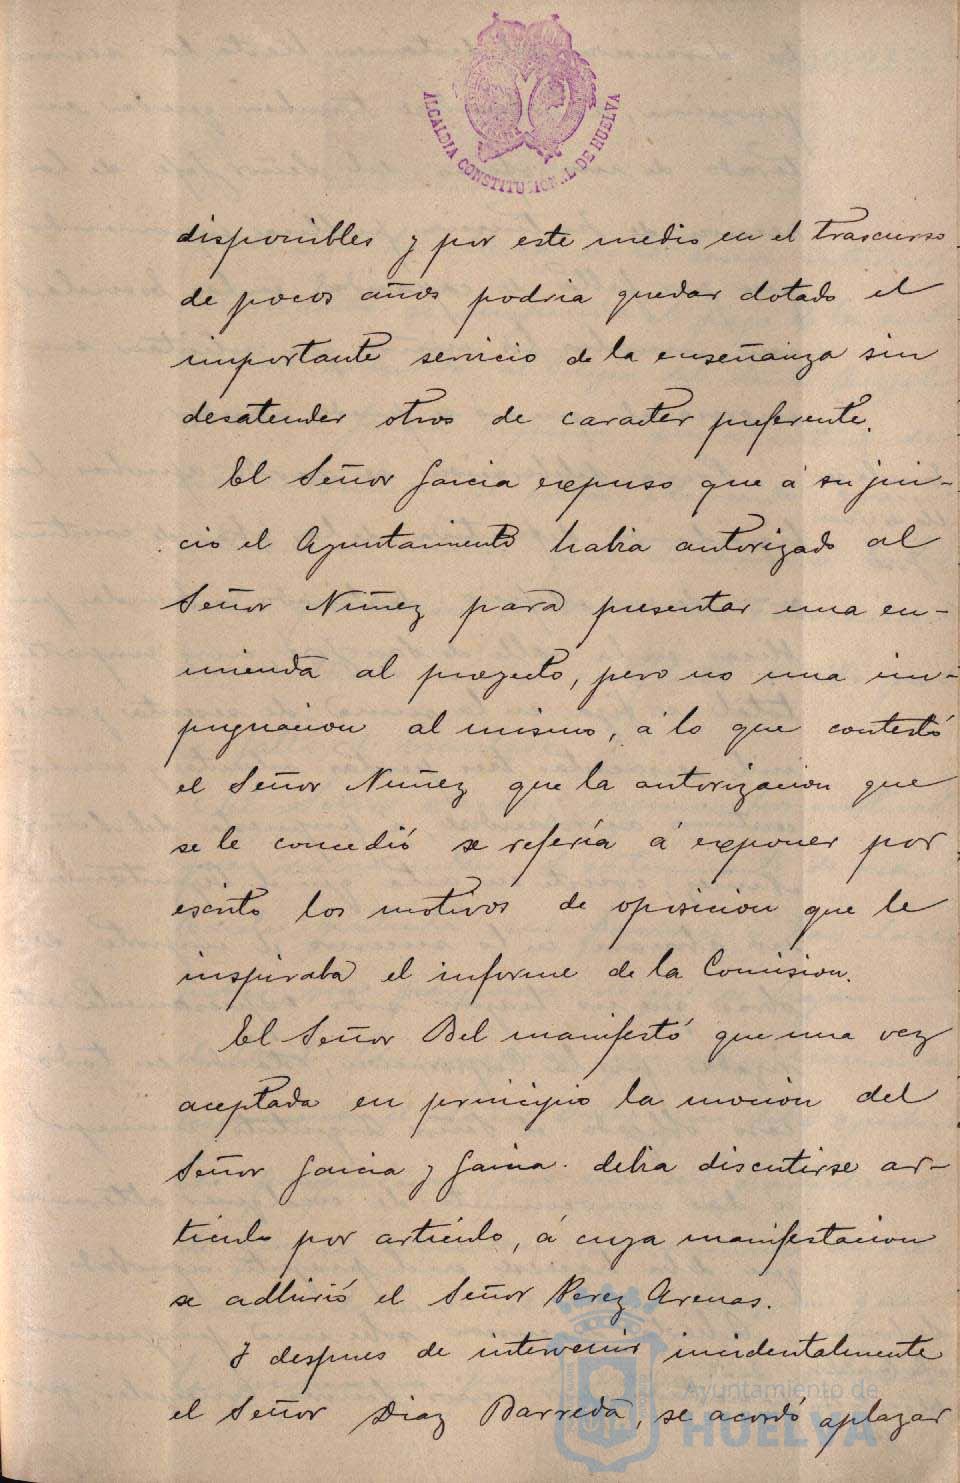 ALCALDIA CONSTITUCIONAL DE HUELVA
disponibles y por este medio en el trascurso
de pocos años podria quedar dotado el
importante servicio de la enseñanza sin
desatender otros de caracter preferente.
El Señor Garcia expuso que á su jui-
cio el Ayuntamiento habia autorizado al
Señor Nuñez para presentar una en-
mienda al proyecto, pero no una im-
pugnacion al mismo, á lo que contestó
el Señor Nuñez que la autorizacion que
se le concedió se refería á exponer por
escrito los motivos de oposicion que le
inspiraba el informe de la Comision.
El Señor Bel manifestó que una vez
aceptada en principio la mocion del
Señor Garcia y Garcia debia discutirse ar-
ticulo por artículo, á cuya manifestacion
se adhirió el Señor Perez Arenas.
Y despues de intervenir incidentalmente
el Señor Diaz Barreda, se acordó aplazar
Ayuntamiento de
HUELVA